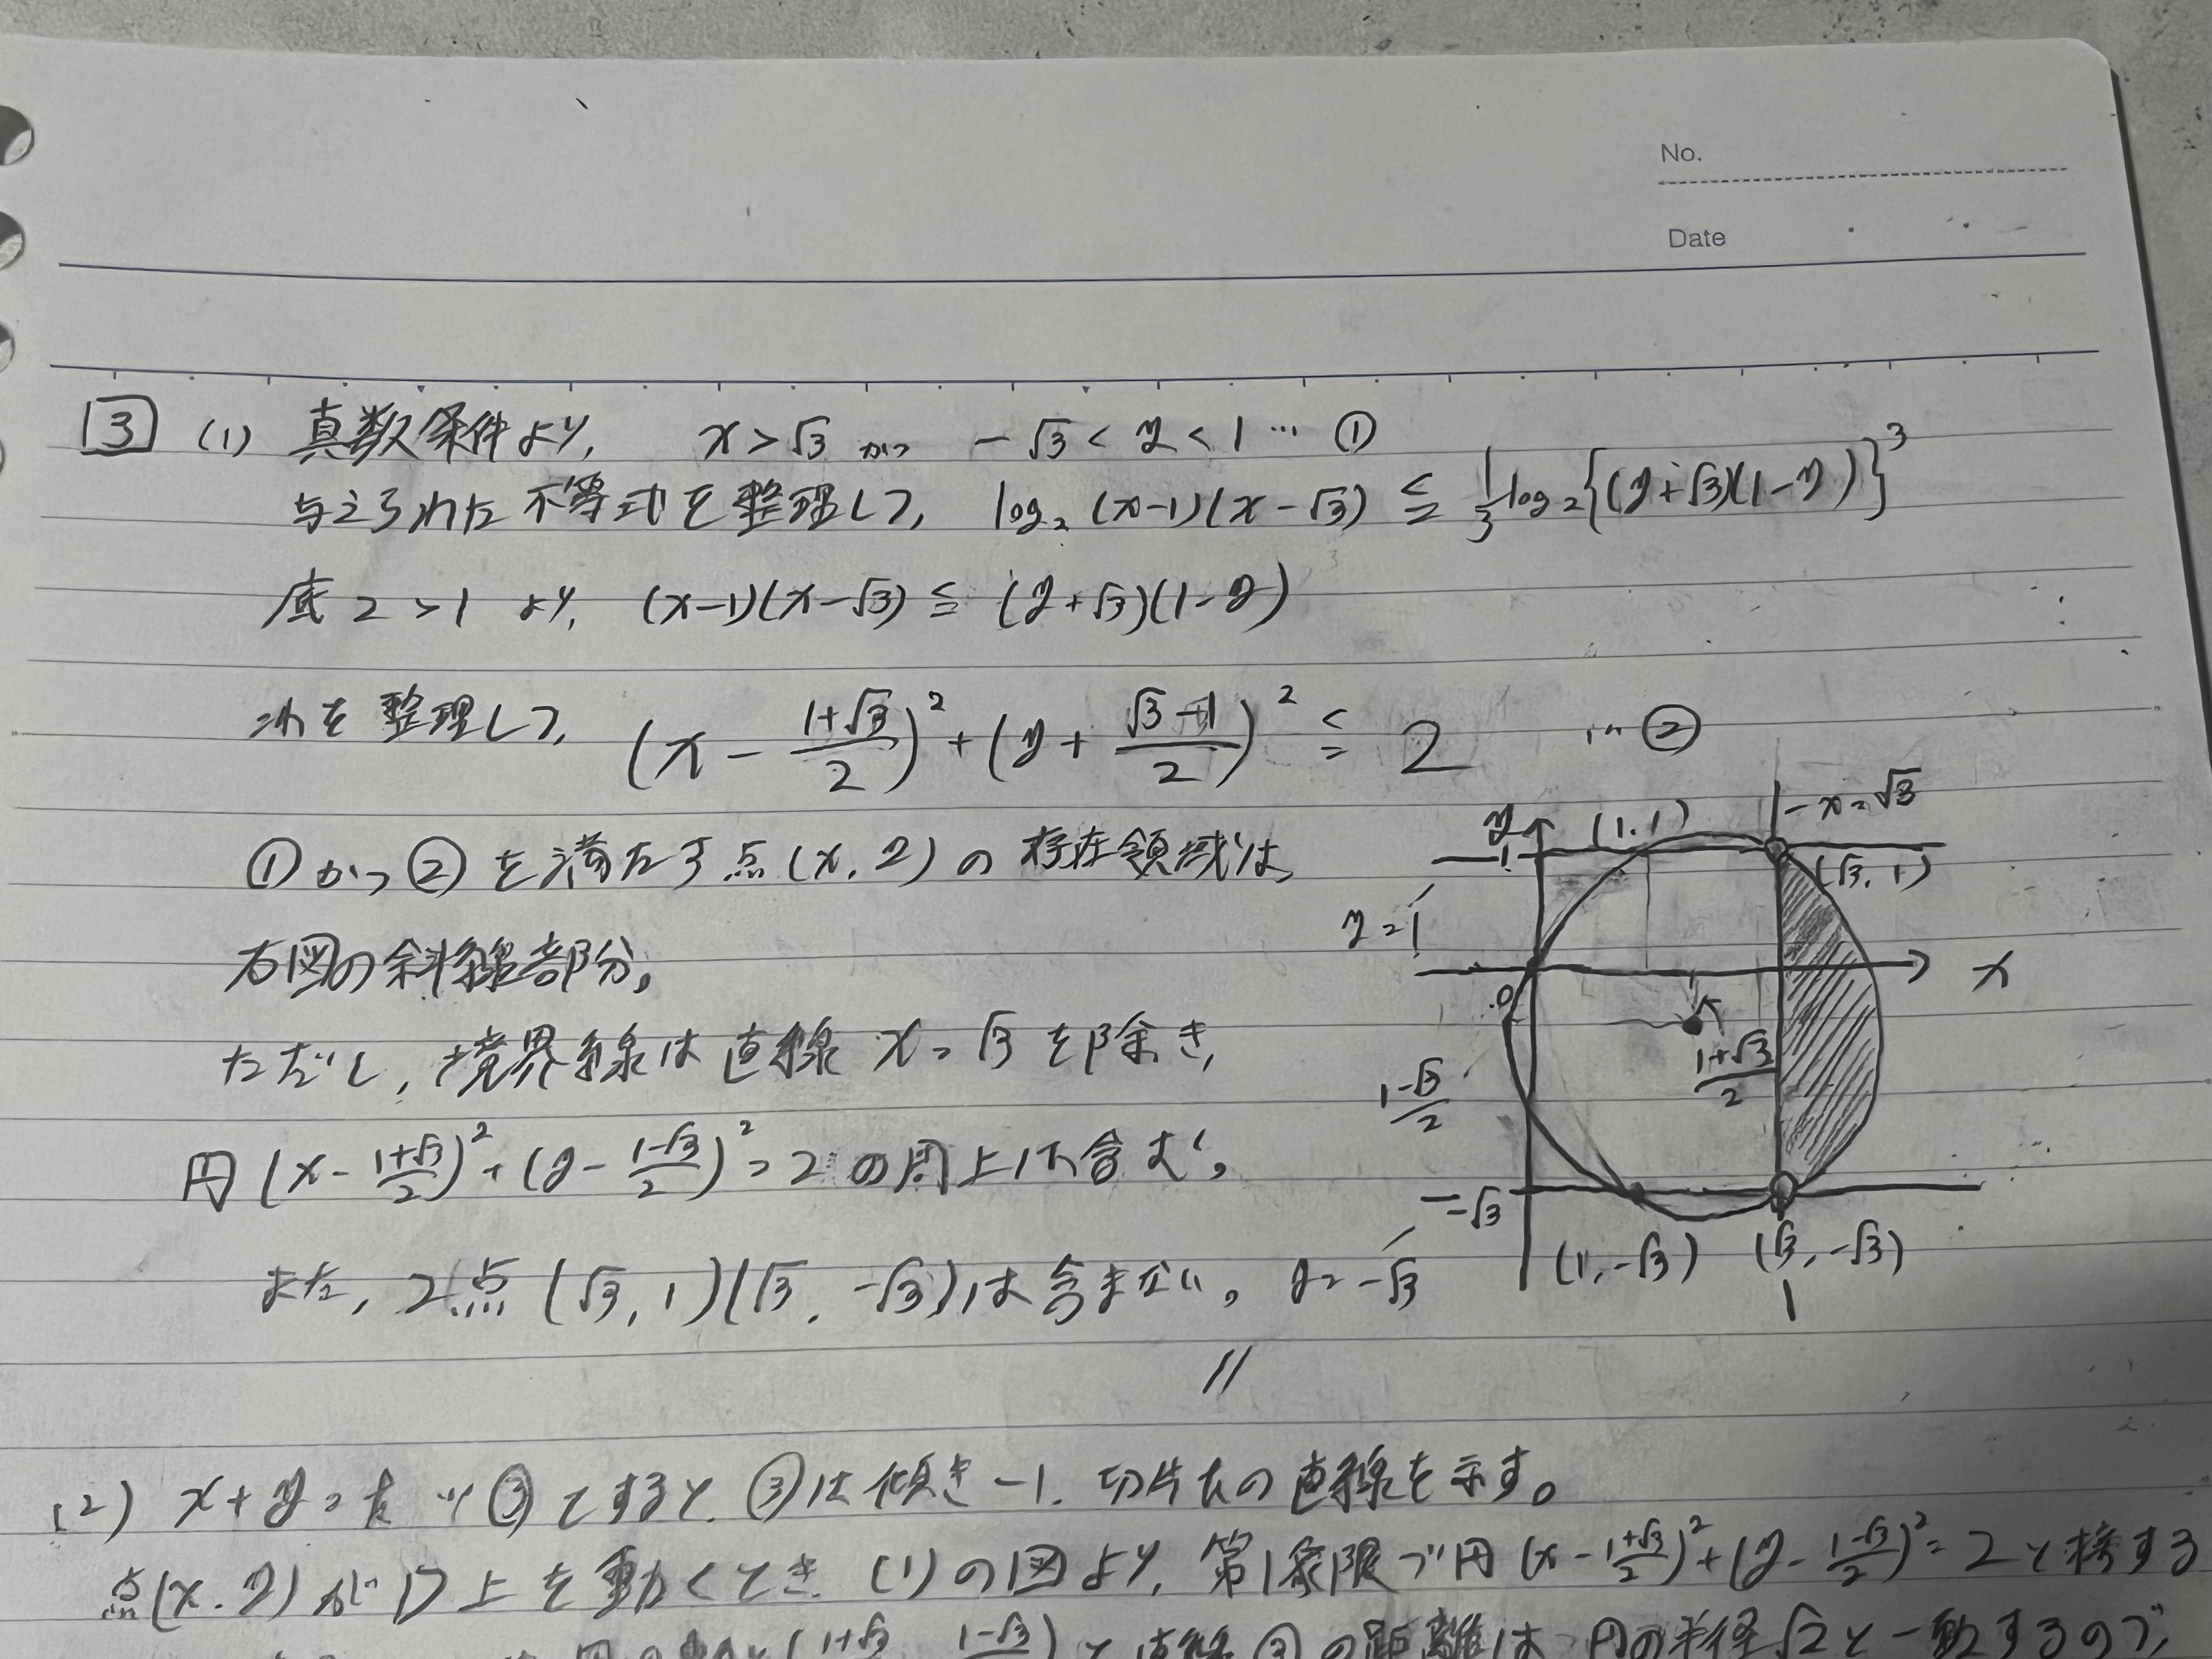 No.
Date
3 (1) 真数条件より, x > √3 かつ - √3 < y < 1 … ①
与えられた不等式を整理して, log₂ (x-1)(x-√3) ≦ 1/3 log₂{(y+√3)(1-y)}³
底 2 > 1 より, (x-1)(x-√3) ≦ (y+√3)(1-y)
これを整理して, (x - (1+√3)/2)² + (y + (√3-1)/2)² ≦ 2 … ②
①かつ②を満たす点(x, y)の存在領域は,
右図の斜線部分。
ただし, 境界線は直線 x = √3 を除き,
円 (x - (1+√3)/2)² + (y - (1-√3)/2)² = 2 の周上は含む。
また, 2点 (√3, 1)(√3, -√3)は含まない。
//
y
(1, 1)
x = √3
1
(√3, 1)
y = 1
x
0
(1+√3)/2
(1-√3)/2
-√3
(1, -√3) (√3, -√3)
y = -√3
(2) x + y = k … ③ とすると, ③は傾き -1, 切片kの直線を示す。
点(x, y) が D上を動くとき, (1)の図より, 第1象限で円 (x - (1+√3)/2)² + (y - (1-√3)/2)² = 2 と接する
(1+√3)/2 (1-√3)/2 ) と直線③の距離は 円の半径√2と一致するので,